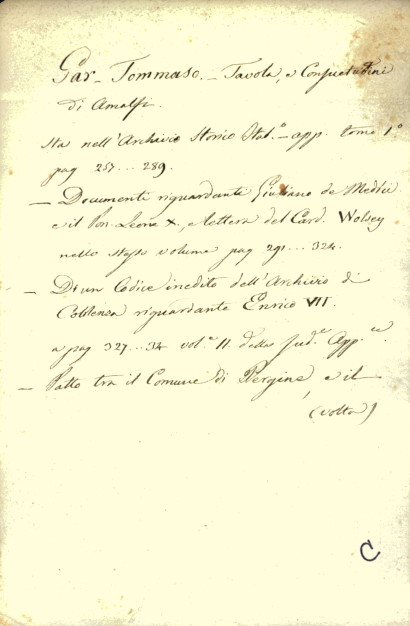 Gar - Tommaso. - Tavola, e Consuetudini
di Amalfi.
sta nell'Archivio Storico Ital.º - app. tomo 1º
pag 257...289.
— Documenti riguardanti Giuliano de Medici
e il Pon. Leone X., e lettera del Card. Wolsey
nello stesso volume pag 291...324.
— Di un Codice inedito dell'Archivio di
Coblenza riguardante Enrico VII.
a pag 327...34 vol.e II della sud.e App.ce.
— Patto tra il Comune di Pergine e il
(volta)
C